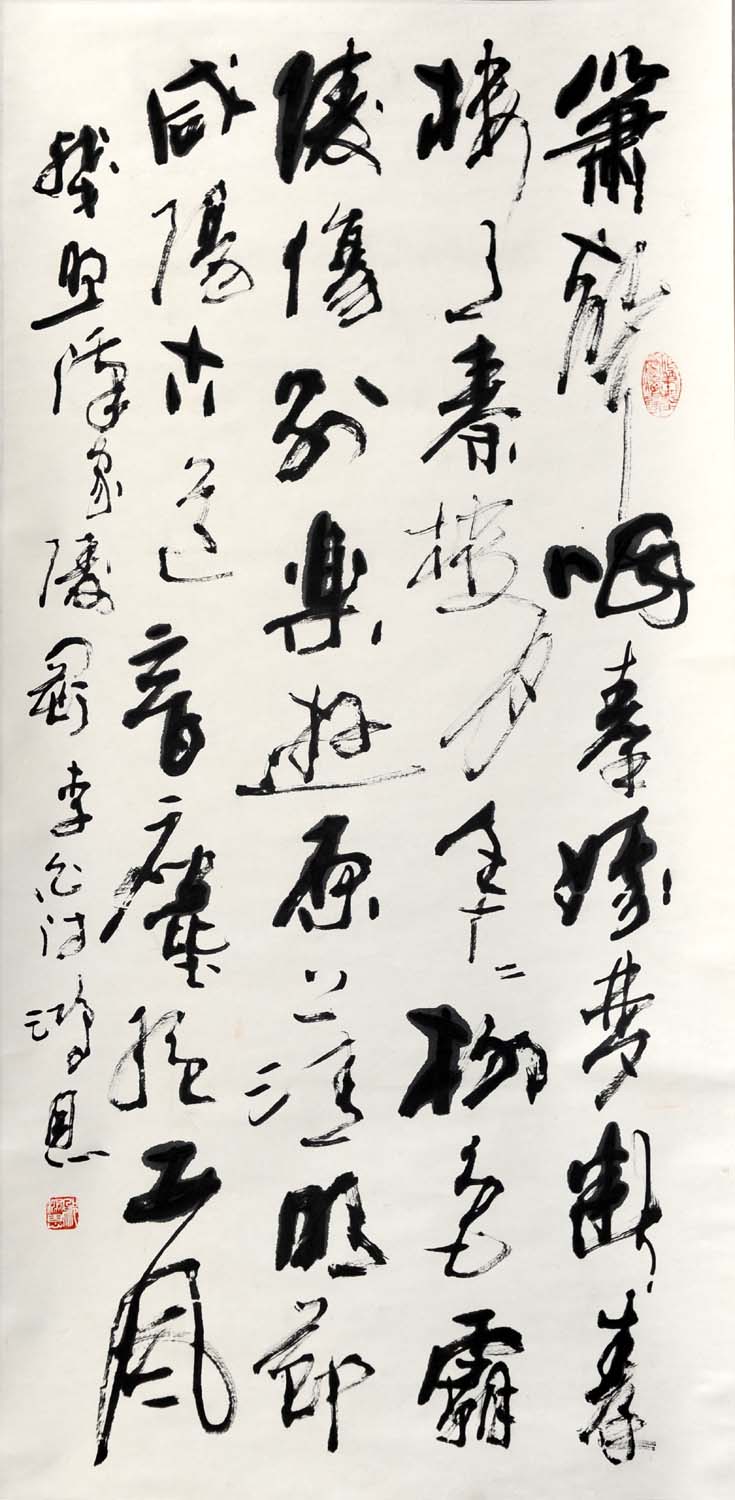 簫聲咽秦娥夢斷秦
樓月秦樓月年〻柳色霸
陵傷別樂遊原上清明節
咸陽古道音塵絕西風
殘照漢家陵闕李白詩鴻恩